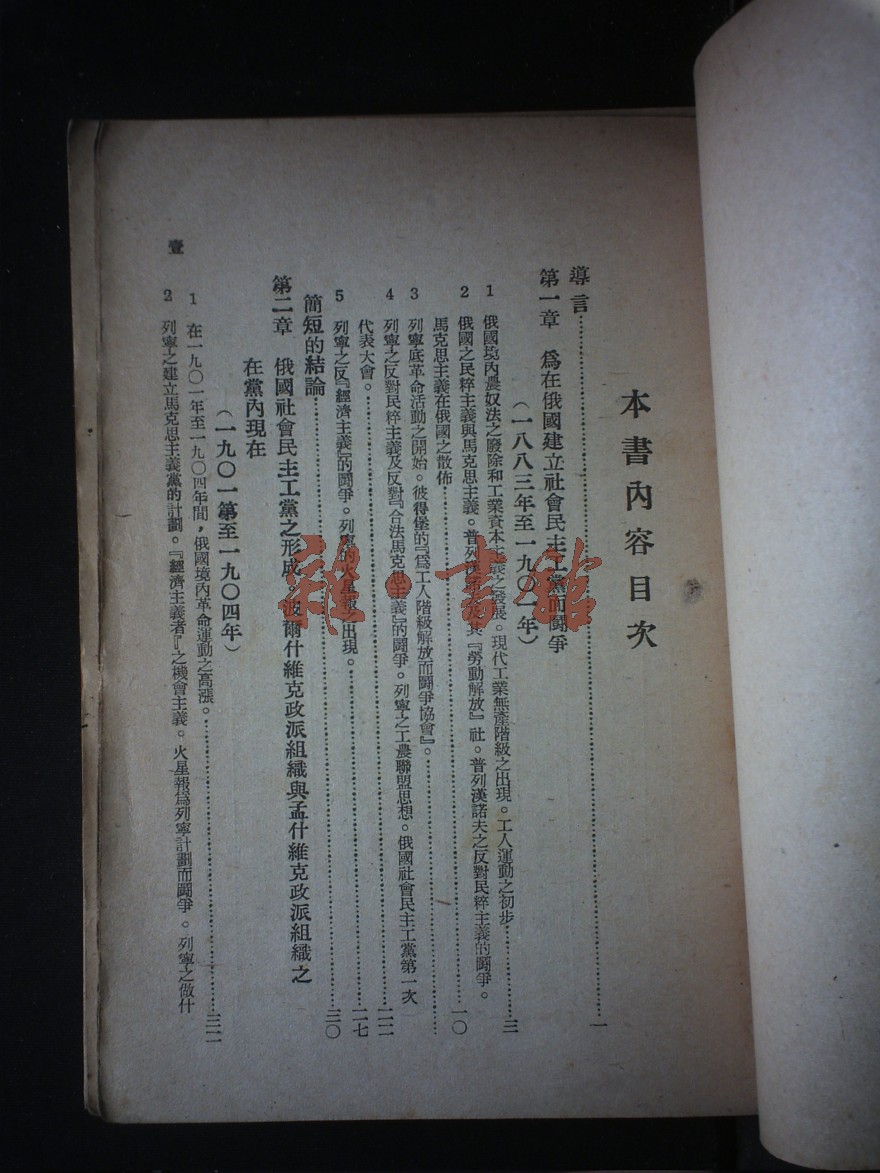 本書內容目次
導言……一
第一章　爲在俄國建立社會民主工黨而鬪爭
（一八八三年至一九〇一年）
1　俄國境內農奴法之廢除和工業資本主義之發展。現代工業無產階級之出現。工人運動之初步……三
2　俄國之民粹主義與馬克思主義。普列漢諾夫及其『勞動解放』社。普列漢諾夫之反對民粹主義的鬪爭。
馬克思主義在俄國之散佈……一〇
3　列寧底革命活動之開始。彼得堡的『爲工人階級解放而鬪爭協會』。……
4　列寧之反對民粹主義及反對『合法馬克思主義』的鬪爭。列寧之工農聯盟思想。俄國社會民主工黨第一次
代表大會。……二二
5　列寧之反『經濟主義』的鬪爭。列寧的火星報之出現。……二七
簡短的結論……三〇
第二章　俄國社會民主工黨之形成。波爾什維克政派組織與孟什維克政派組織之
在黨內現在
（一九〇一第至一九〇四年）
1　在一九〇一年至一九〇四年間，俄國境內革命運動之高漲。……三二
2　列寧之建立馬克思主義黨的計劃。『經濟主義者』之機會主義。火星報爲列寧計劃而鬪爭。列寧之做什
壹
雜·書館